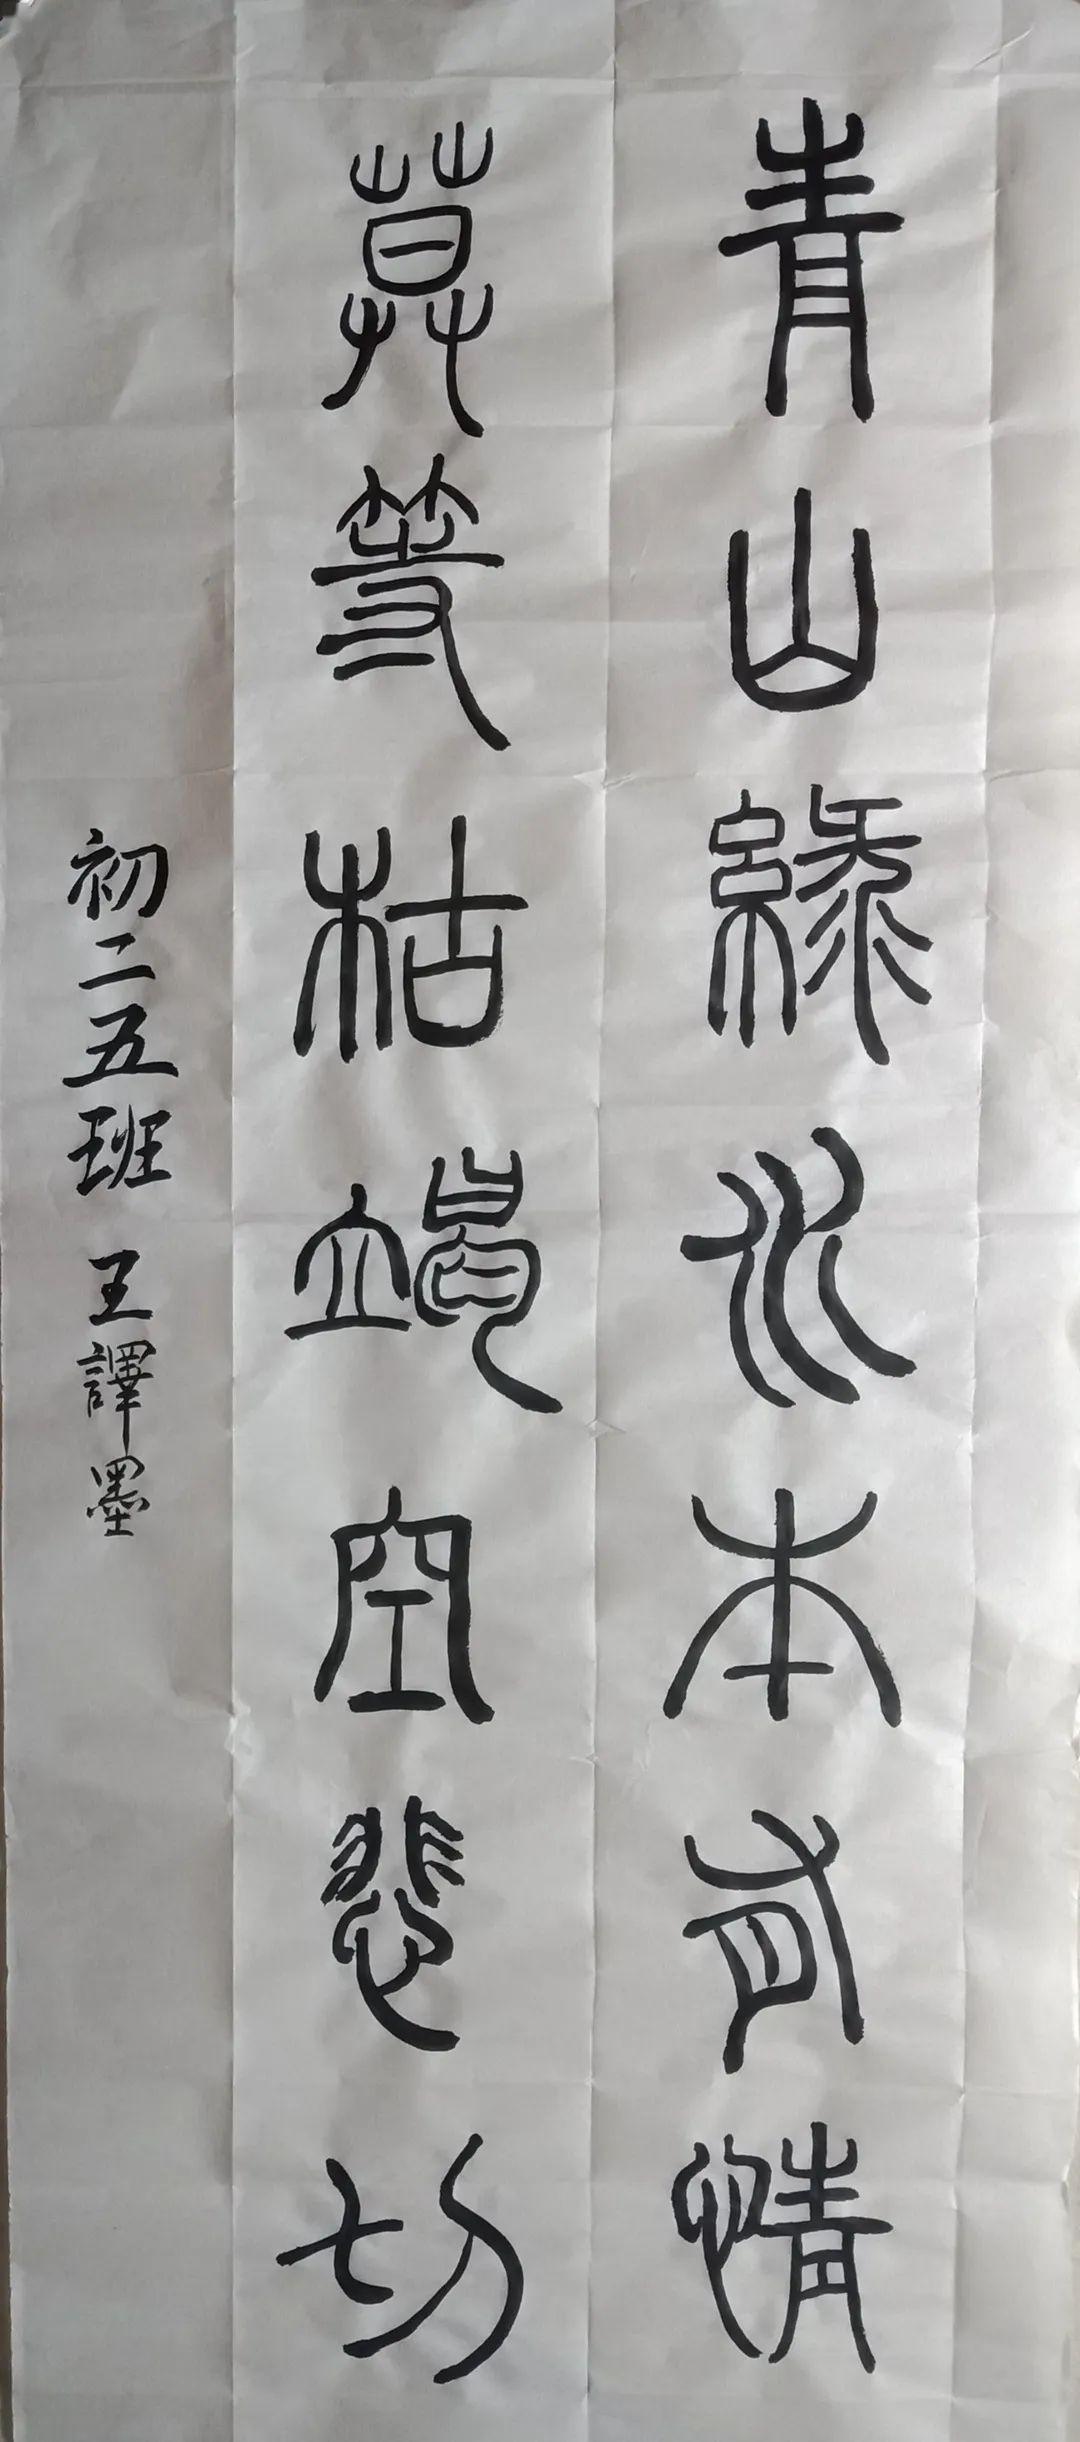 青山綠水本有情
莫等枯竭空悲切
初二五班 王譯墨